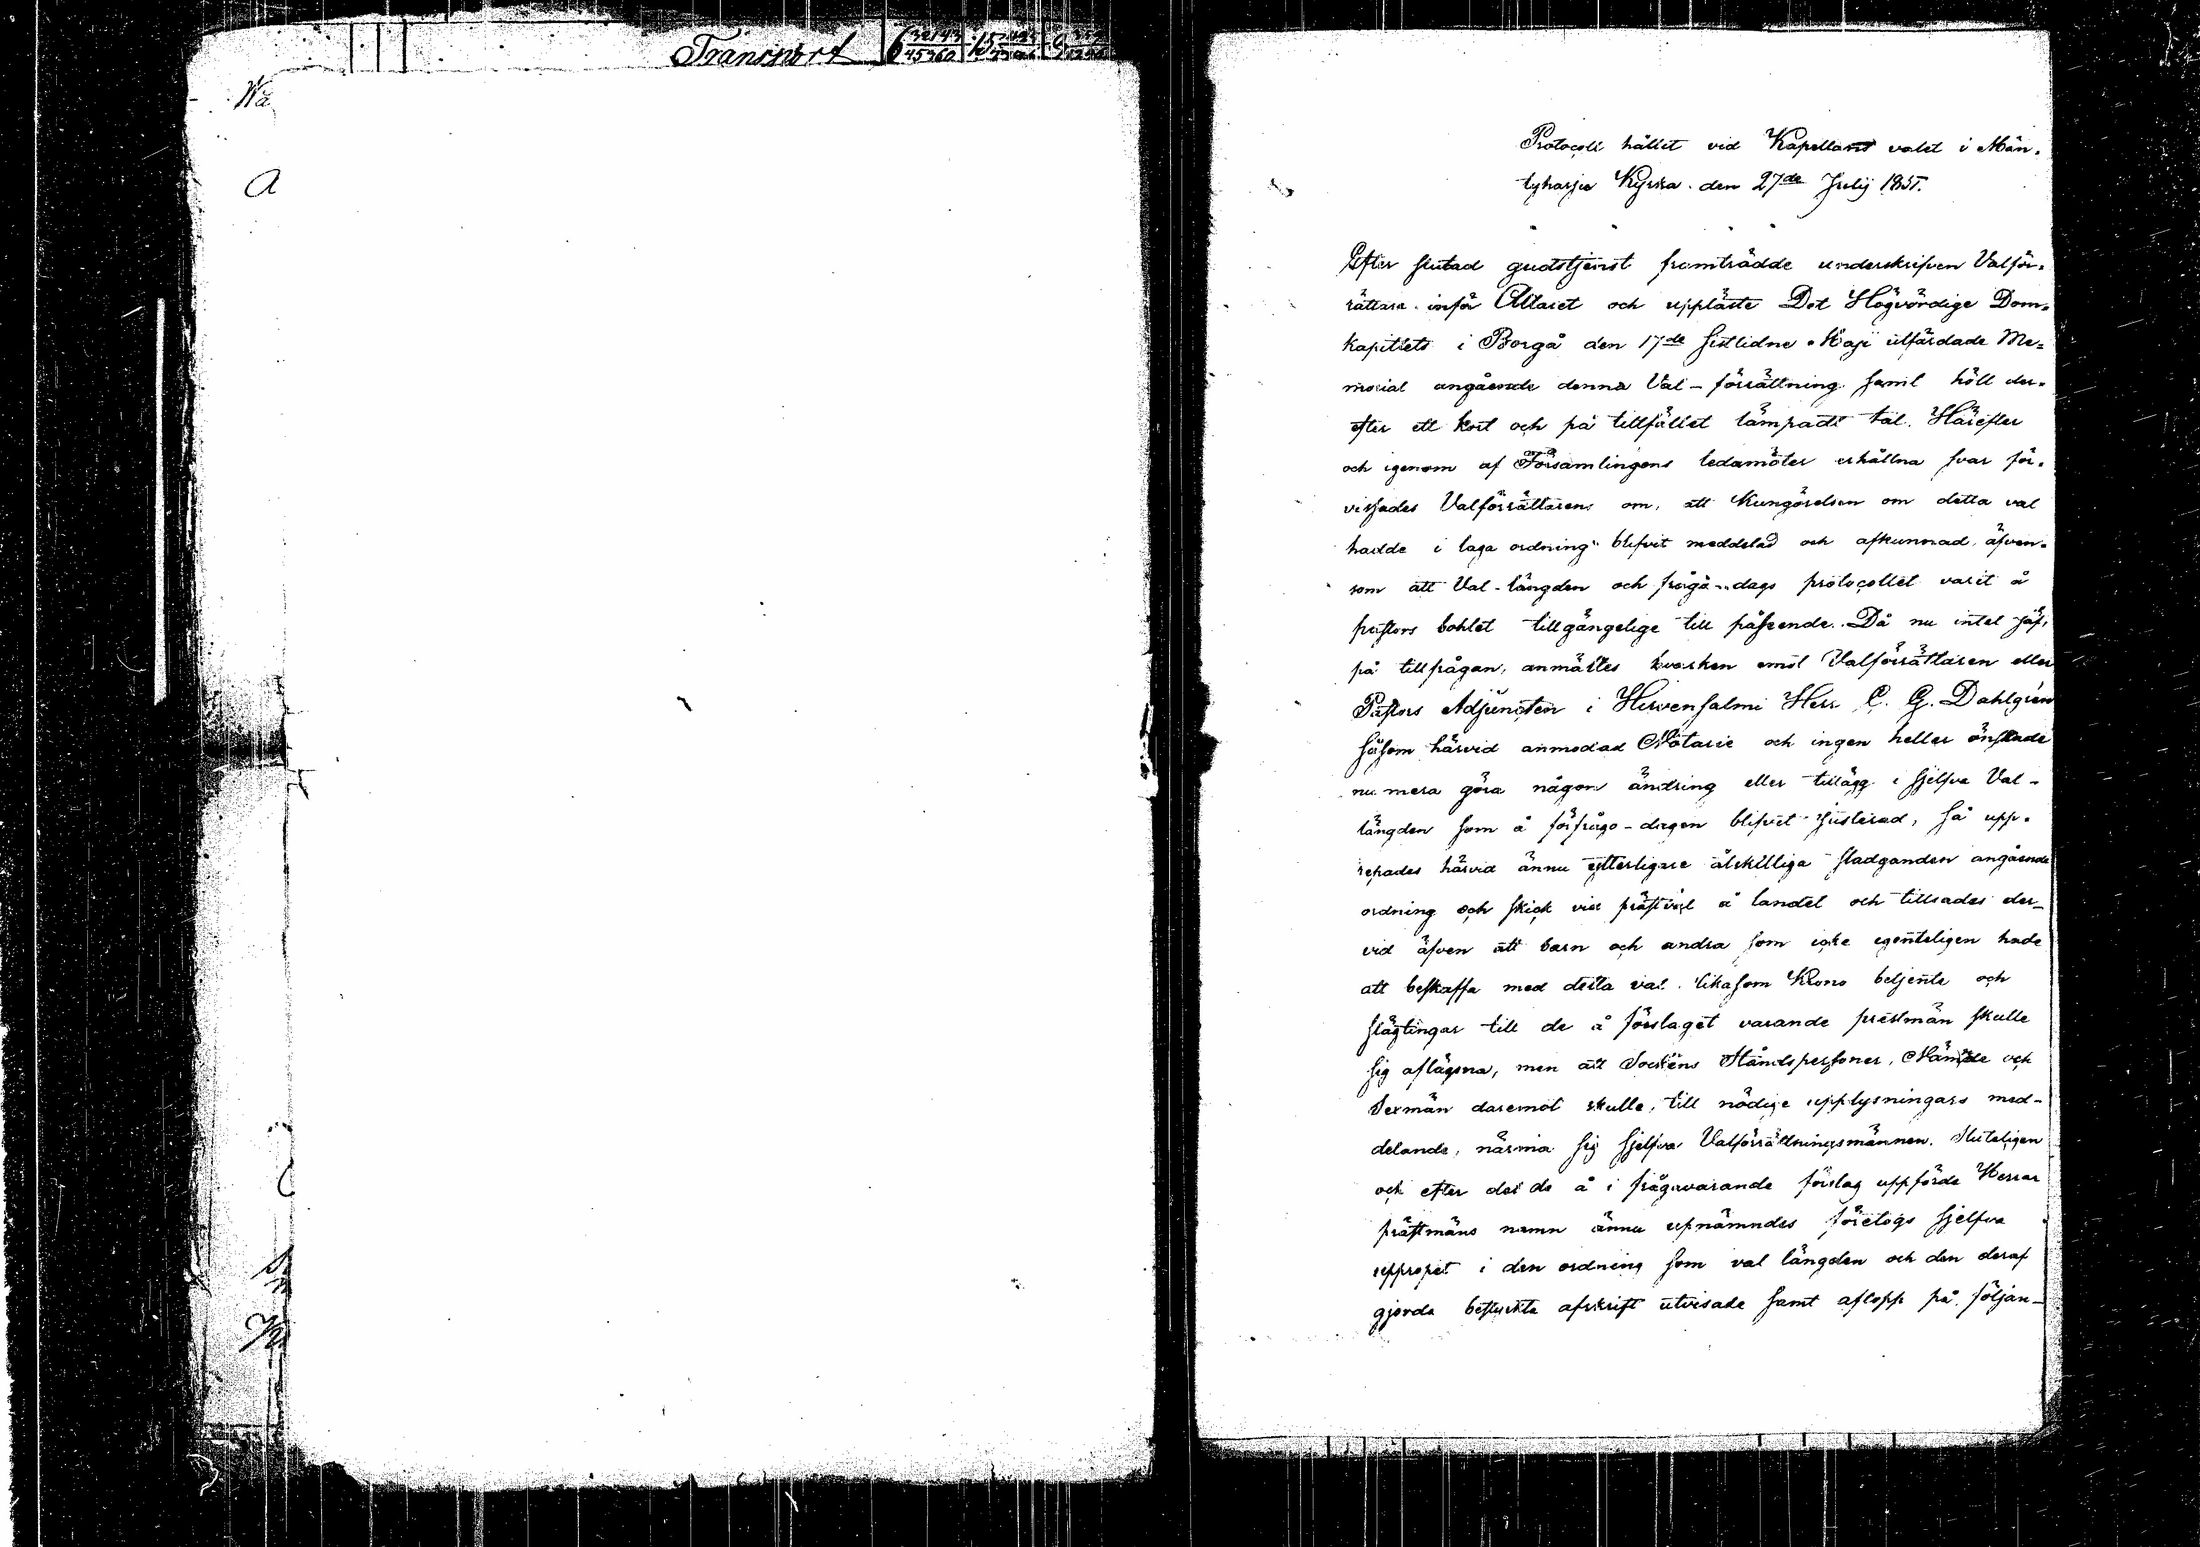 Transport
Wä
A
Protocoll hållet vid Kapellans valet i Män-
tyharju Kyrka den 27de Julij 1851.
Efter slutad gudstjenst framträdde underskrifven Valför-
rättare inför Altaret och uppläste Det Högvördige Dom-
kapitlets i Borgå den 17de sistlidne Maji utfärdade Me-
morial angående denna Val-förrättning samt höll der-
efter ett kort och på tillfället lämpadt tal. Härefter
och igenom af Församlingens ledamöter erhållna svar för-
vissades Valförrättaren om, att Kungörelsen om detta val
hadde i laga ordning blifvit meddelad och afkunnad, äfven-
som att Val-längden och frågo-dags protocollet varit å
pastors bohlet tillgängelige till påseende. Då nu intet jäf,
på tillfrågan, anmältes hvarken emot Valförrättaren eller
Pastors Adjuncten i Hirvensalmi Herr C. G. Dahlgren
såsom härvid anmodad Notarie och ingen heller önskade
nu mera göra någon ändring eller tillägg i sjelfva Val-
längden som å förfrågo-dagen blifvit justerad, så upp-
repades härvid ännu ytterligare åtskilliga stadganden angående
ordning och skick vid prästval å landet och tillsades der-
vid äfven att barn och andra som icke egenteligen hade
att beskaffa med detta val, likasom Krono betjente och
slägtingar till de å förslaget varande prestmän skulle
sig aflägsna, men att Sockens Ståndspersoner, Nämnde och
Sexmän daremot skulle, till nödige upplysningars med-
delande, närma sig sjelfva Valförrättningsmännen. Sluteligen
och efter det de å i frågavarande förslag uppförde Herrar
prästmäns namn ännu upnämndes företogs sjelfva
uppropet i den ordning som val längden och den deraf
gjorda bestyrkta afskrift utvisade samt aflopp på följan-